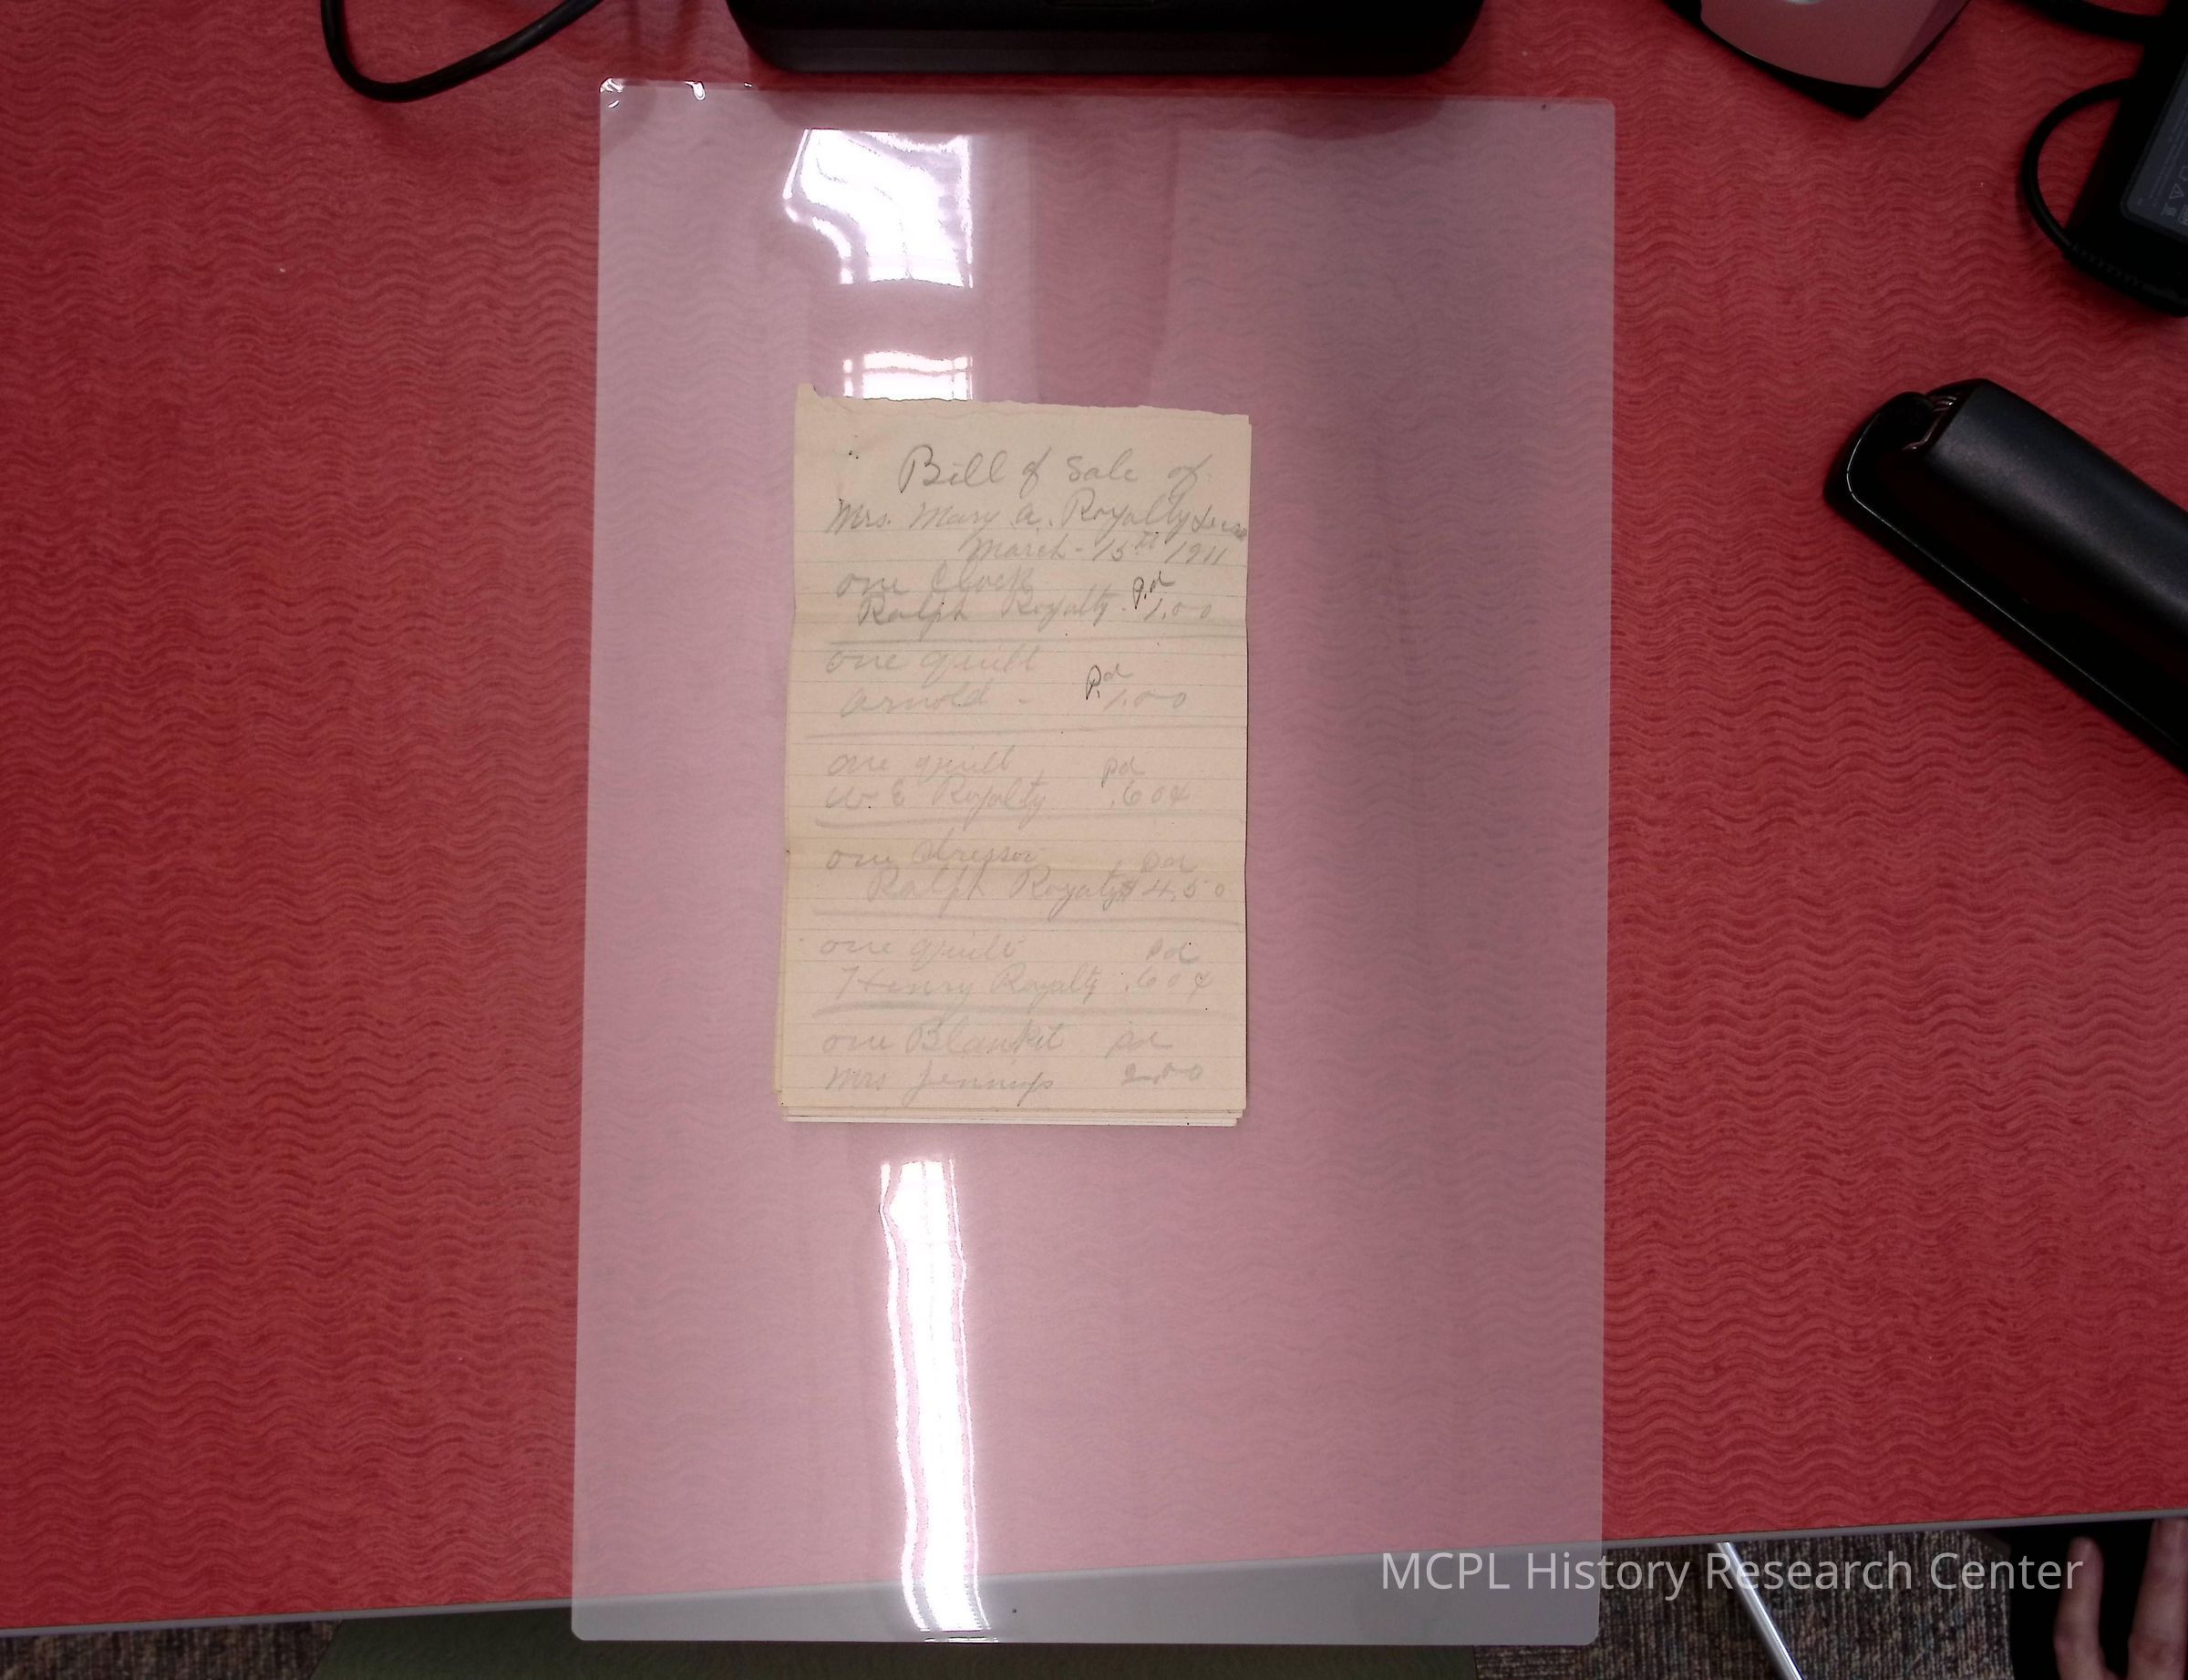 Bill of Sale of
Mrs. Mary A. Royalty
March - 15th 1911
one Clock Pd
Ralph Royalty. 1.00
one quilt Pd
Arnold - 1.00
one quilt Pd
W E Royalty .60¢
one dresser Pd
Ralph Royalty $4.50
one quilt Pd
Henry Royalty .60¢
one Blanket Pd
Mrs Jennings 2.00
MCPL History Research Center